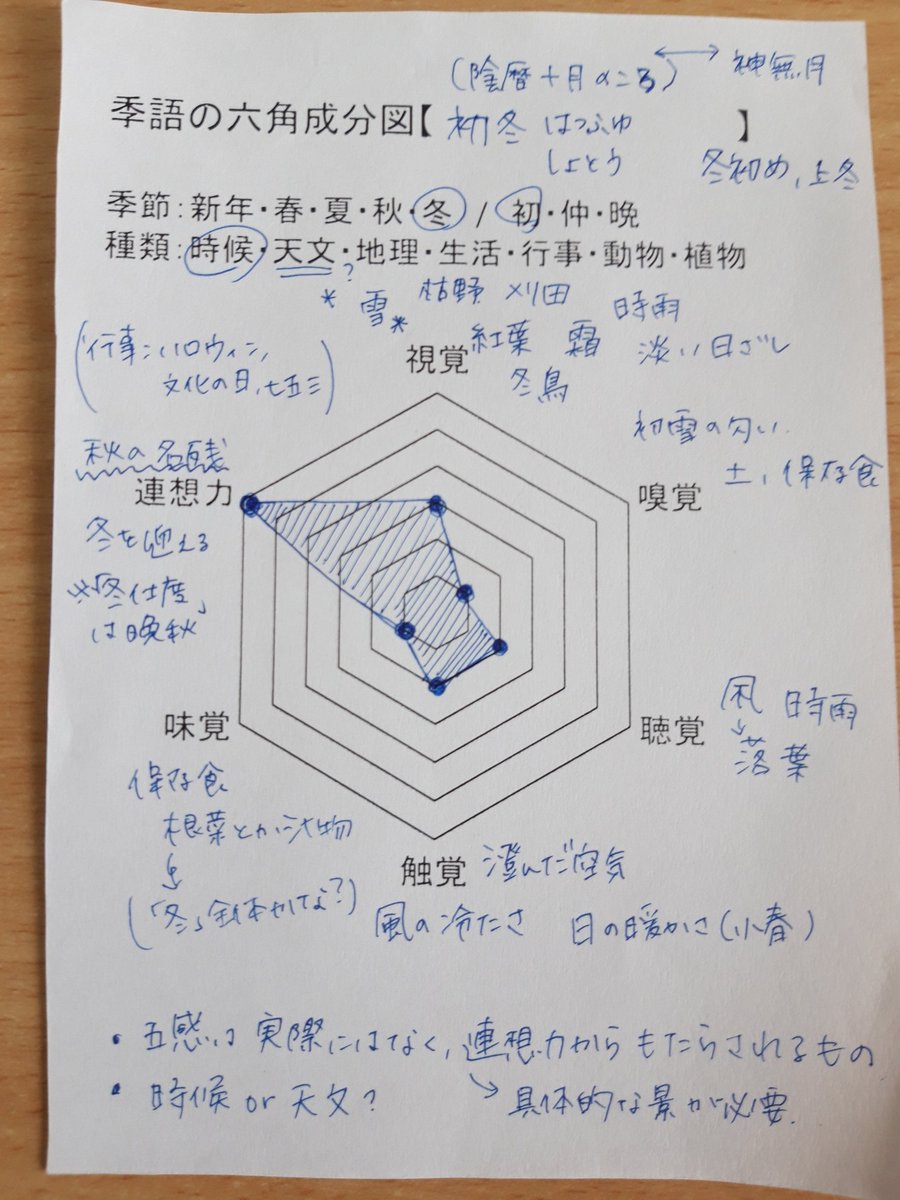 (陰暦十月のころ) ↔ 神無月
季語の六角成分図【初冬 はつふゆ 】
しょとう
冬初め、上冬
季節:新年・春・夏・秋・冬 / 初・仲・晩
種類:時候・天文・地理・生活・行事・動物・植物
?
*雪* 枯野 刈田 時雨
紅葉 霜 淡い日ざし
冬鳥
(行事:ハロウィン,
文化の日,七五三)
視覚
初雪の匂い
土、保存食
嗅覚
秋の名残
連想力
冬を迎える
※「冬仕度」
は晩秋
風 時雨
↓
落葉
聴覚
味覚
保存食
根菜とか汁物
↓
(「冬」全体かな?)
触覚 澄んだ空気
風の冷たさ 日の暖かさ(小春)
・五感は実際にはなく,連想力からもたらされるもの
・時候 or 天文? ↘具体的な景が必要.